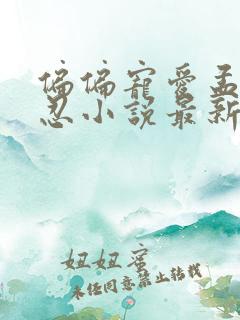 偏偏寵愛孟
忍小說最新
妞妞蜜
未经同意禁止转载